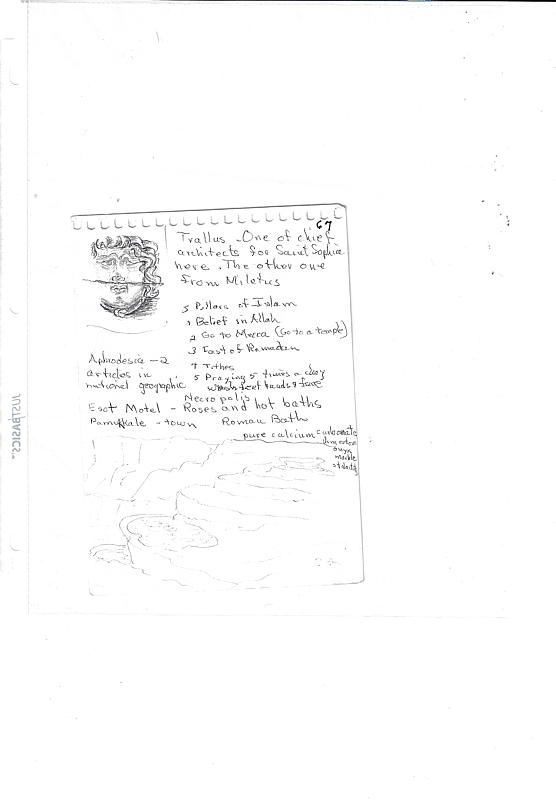 67
Trallus. One of chief
architects for Saint Sophia
here. The other one
from Miletus
5 Pillars of Islam
1 Belief in Allah
2 Go to Mecca (Go to a temple)
3 Fast of Ramadan
4 Tithes
5 Praying 5 times a day
wash feet hands & face
Aphrodesia - 2
articles in
national geographic
Necropolis
Motel - Roses and hot baths
Pamukkale - town Roman Bath
pure calcium carbonate
limestone
onyx
marble
JUSTBASICS